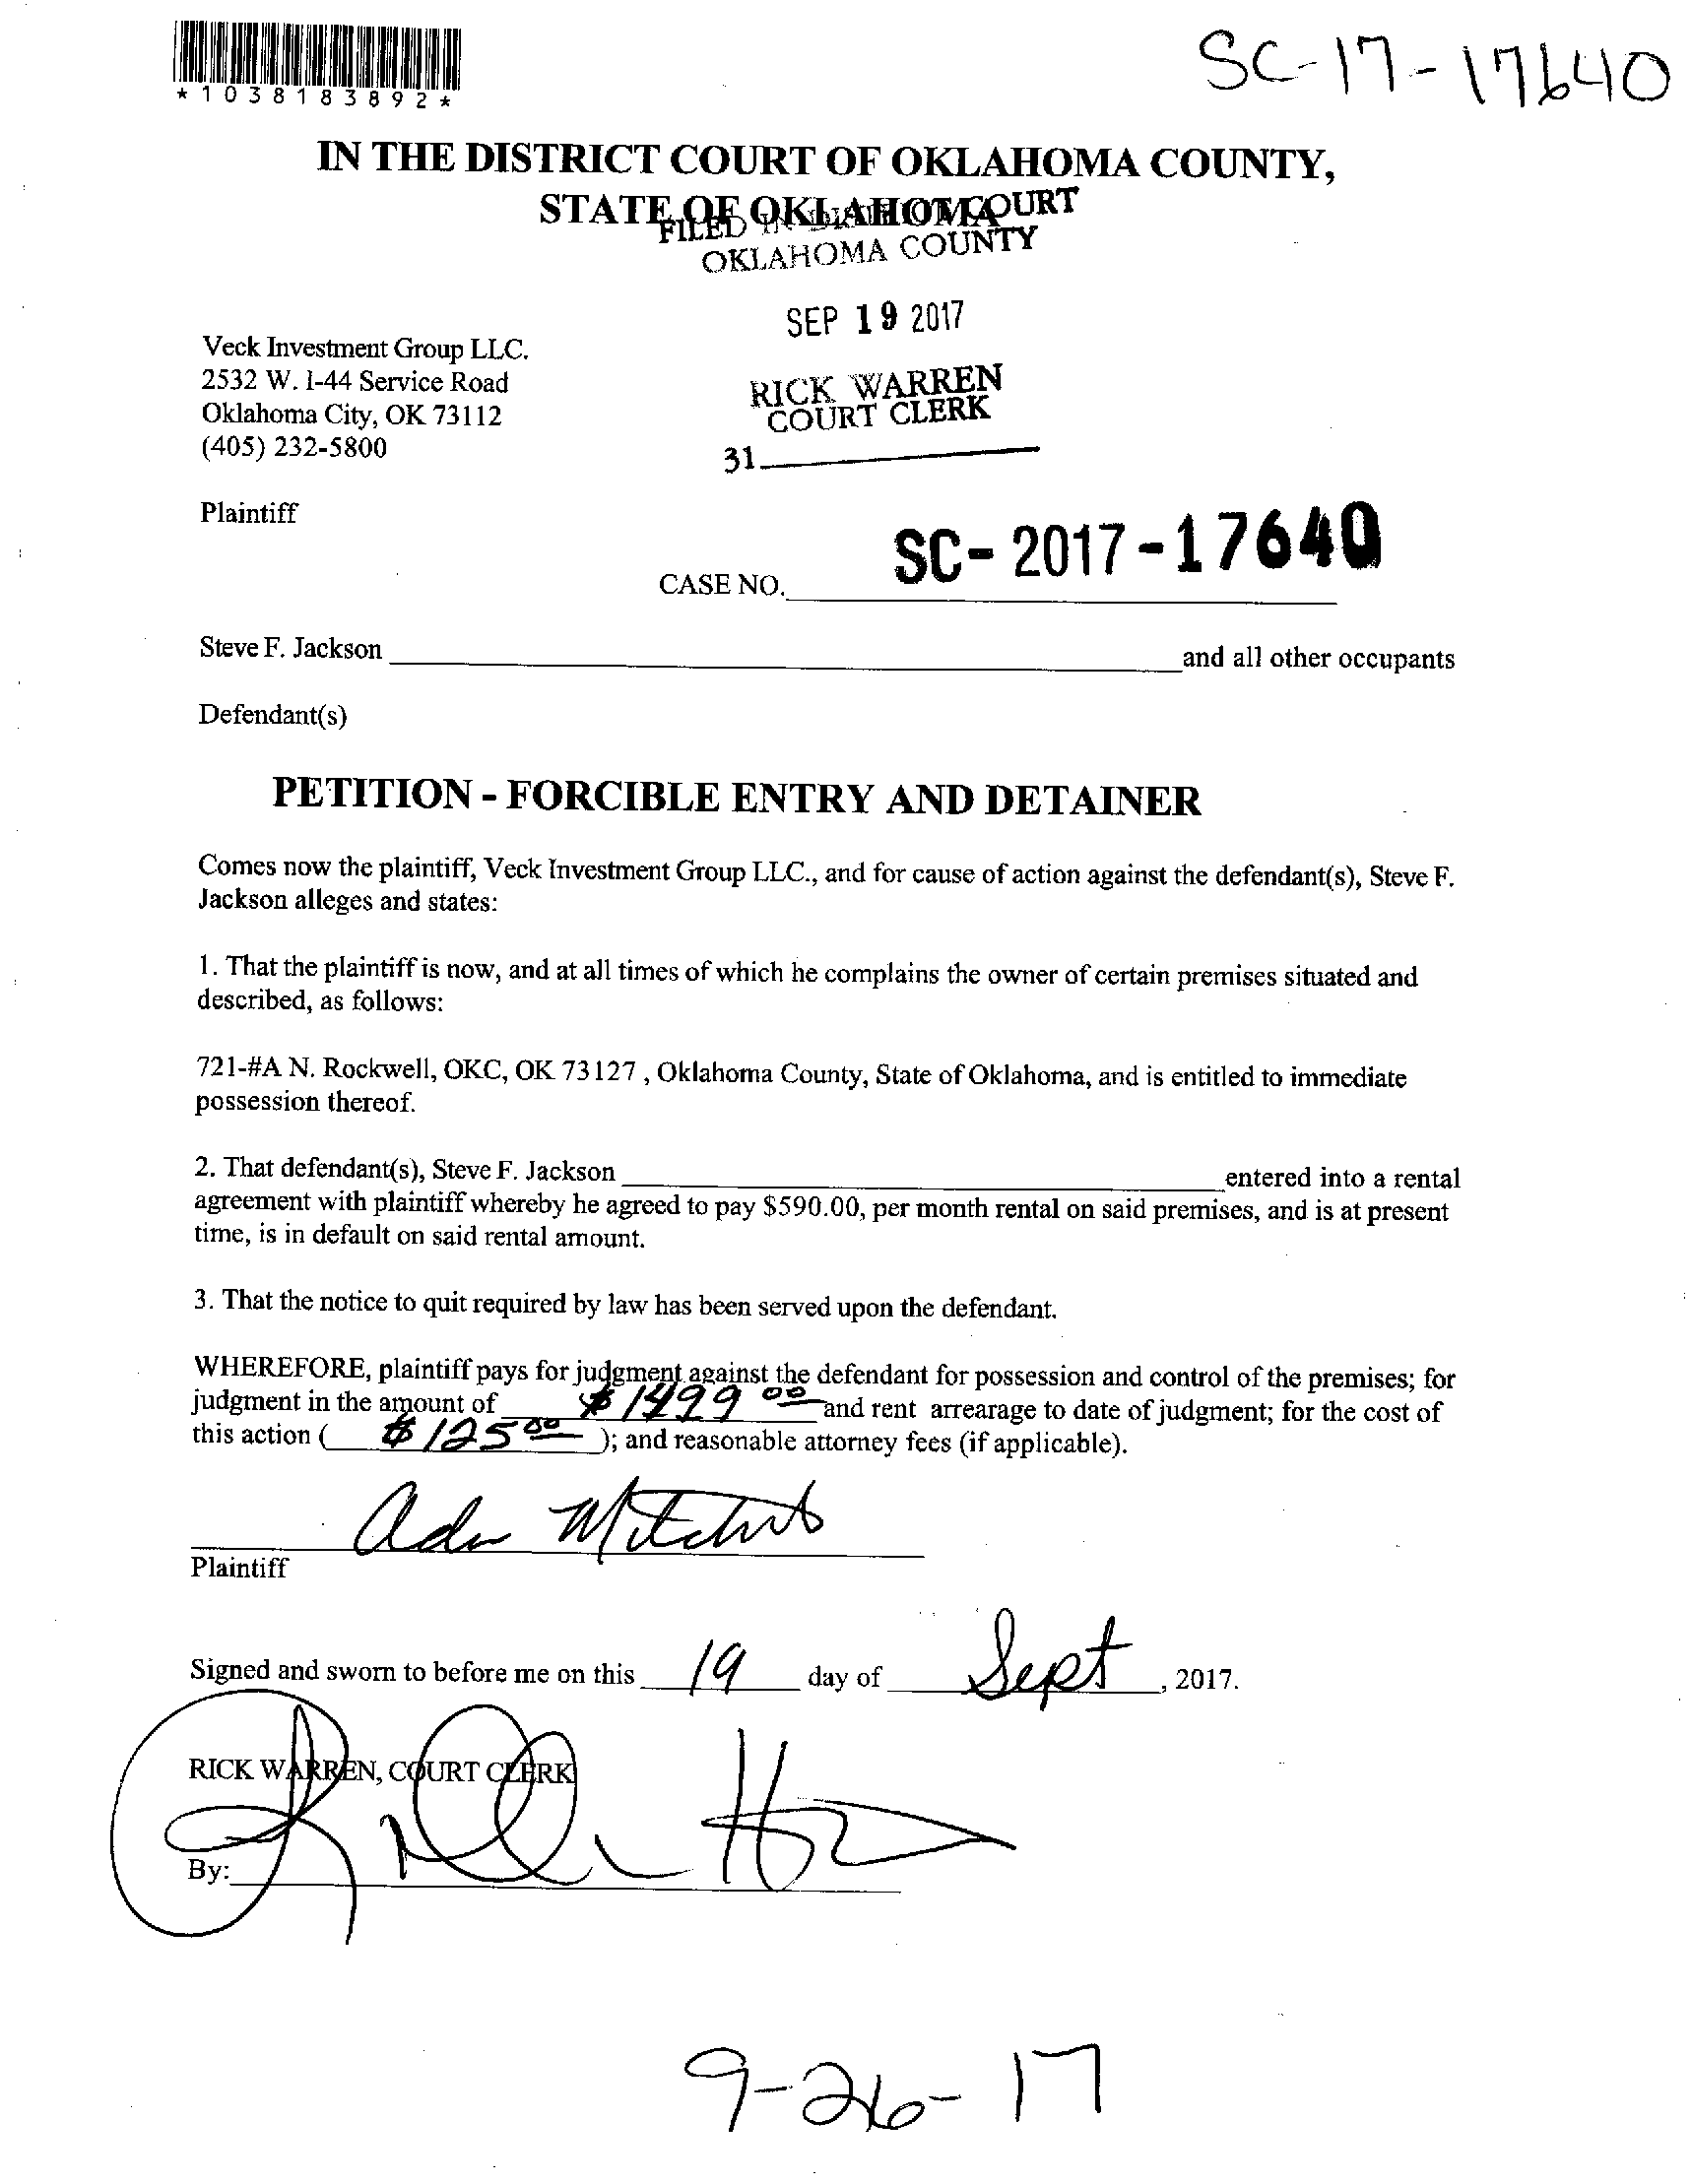 *1038183892*
SC-17-17640
IN THE DISTRICT COURT OF OKLAHOMA COUNTY,
STATE OF OKLAHOMA
FILED IN DISTRICT COURT
OKLAHOMA COUNTY
SEP 19 2017
Veck Investment Group LLC.
2532 W. I-44 Service Road
Oklahoma City, OK 73112
(405) 232-5800
RICK WARREN
COURT CLERK
31
Plaintiff
CASE NO. SC-2017-17640
Steve F. Jackson and all other occupants
Defendant(s)
PETITION - FORCIBLE ENTRY AND DETAINER
Comes now the plaintiff, Veck Investment Group LLC., and for cause of action against the defendant(s), Steve F.
Jackson alleges and states:
1. That the plaintiff is now, and at all times of which he complains the owner of certain premises situated and
described, as follows:
721-#A N. Rockwell, OKC, OK 73127 , Oklahoma County, State of Oklahoma, and is entitled to immediate
possession thereof.
2. That defendant(s), Steve F. Jackson entered into a rental
agreement with plaintiff whereby he agreed to pay $590.00, per month rental on said premises, and is at present
time, is in default on said rental amount.
3. That the notice to quit required by law has been served upon the defendant.
WHEREFORE, plaintiff pays for judgment against the defendant for possession and control of the premises; for
judgment in the amount of $1499 00 and rent arrearage to date of judgment; for the cost of
this action ( $125 00 ); and reasonable attorney fees (if applicable).
Plaintiff
Signed and sworn to before me on this 19 day of Sept, 2017.
RICK WARREN, COURT CLERK
By:
9-26-17